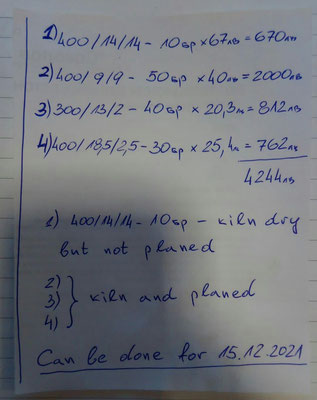 1) 400/14/14 - 10бр × 67лв = 670лв
2) 400/9/9 - 50бр × 40лв = 2000лв
3) 300/13/2 - 40бр × 20,3лв = 812лв
4) 400/18,5/2,5 - 30бр × 25,4лв = 762лв
4244лв
1) 400/14/14 - 10бр - kiln dry
but not planed
2)
3) } kiln and planed
4)
Can be done for 15.12.2021